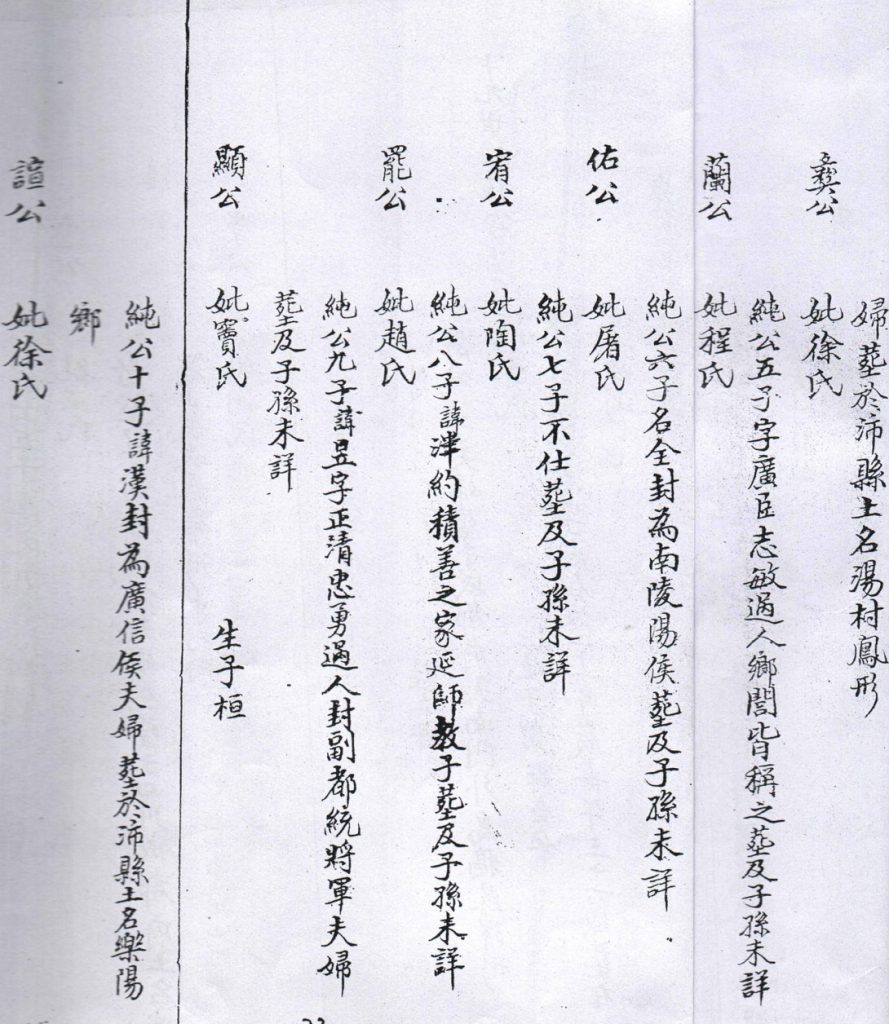 婦塟於沛縣土名湯村鳳形
彝公 妣徐氏
純公五子字廣臣志敏過人鄉閭皆稱之塟及子孫未詳
蘭公 妣程氏
純公六子名全封為南陵陽侯塟及子孫未詳
佑公 妣屠氏
純公七子不仕塟及子孫未詳
宥公 妣陶氏
純公八子諱津約積善之家延師教子塟及子孫未詳
罷公 妣趙氏
純公九子諱昱字正清忠勇過人封副都統將軍夫婦
塟及子孫未詳
顯公 妣竇氏 生子桓
純公十子諱漢封為廣信侯夫婦塟於沛縣土名樂陽
鄉
諠公 妣徐氏